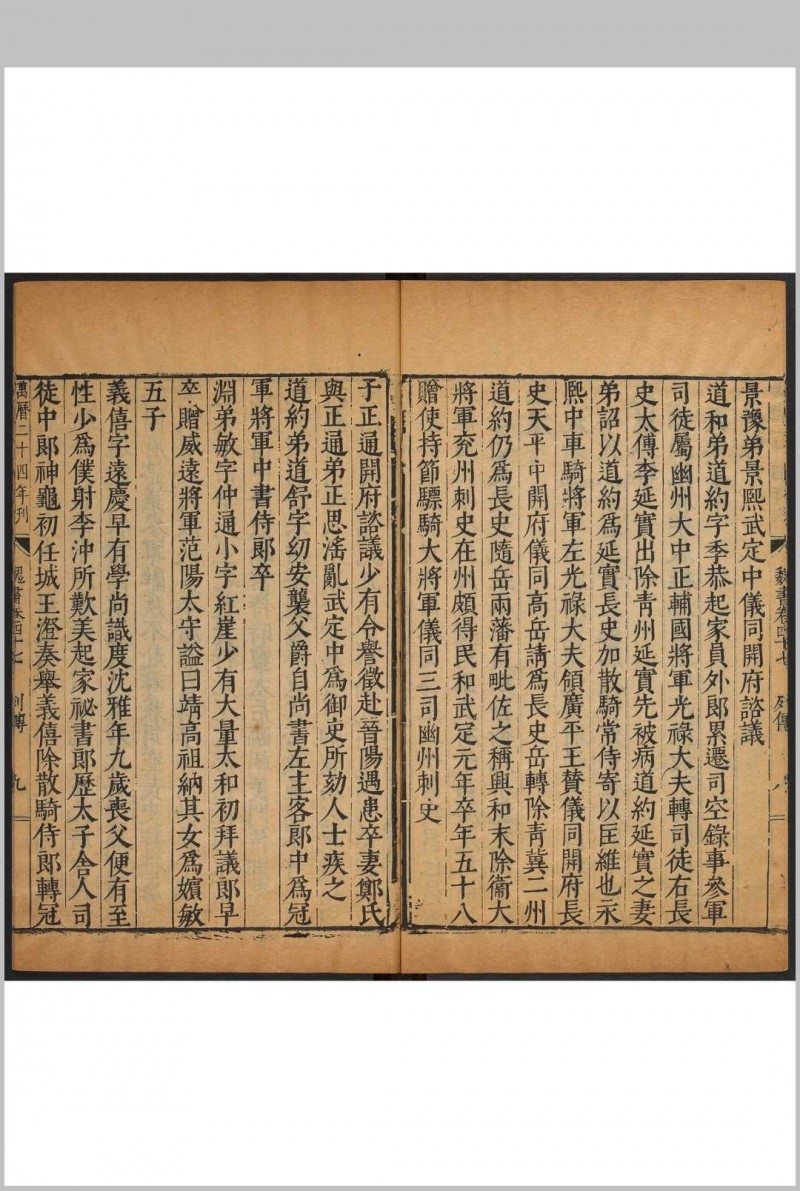 魏書卷四十七
列傳
景豫弟景熙武定中儀同開府諮議
道和弟道約字季恭起家員外郎累遷司空錄事參軍
司徒屬幽州大中正輔國將軍光祿大夫轉司徒右長
史太傅李延實出除青州延實先被病道約延實之妻
弟詔以道約爲延實長史加散騎常侍寄以匡維也永
熙中車騎將軍左光祿大夫領廣平王贊儀同開府長
史天平中開府儀同高岳請爲長史岳轉除青冀二州
道約仍爲長史隨岳兩藩有毗佐之稱興和末除衞大
將軍兗州刺史在州頗得民和武定元年卒年五十八
贈使持節驃騎大將軍儀同三司幽州刺史
子正通開府諮議少有令譽徵赴晉陽遇患卒妻鄭氏
與正通弟正思滛亂武定中爲御史所劾人士疾之
道約弟道舒字幼安襲父爵自尚書左主客郎中爲冠
軍將軍中書侍郎卒
淵弟敏字仲通小字紅崖少有大量太和初拜議郎早
卒贈威遠將軍范陽太守謚曰靖高祖納其女爲嬪敏
五子
義僖字遠慶早有學尚識度沈雅年九歲喪父便有至
性少爲僕射李沖所歎美起家祕書郎歷太子舍人司
徒中郎神龜初任城王澄奏舉義僖除散騎侍郎轉冠
萬曆二十四年刊
魏書卷四十七
列傳
九